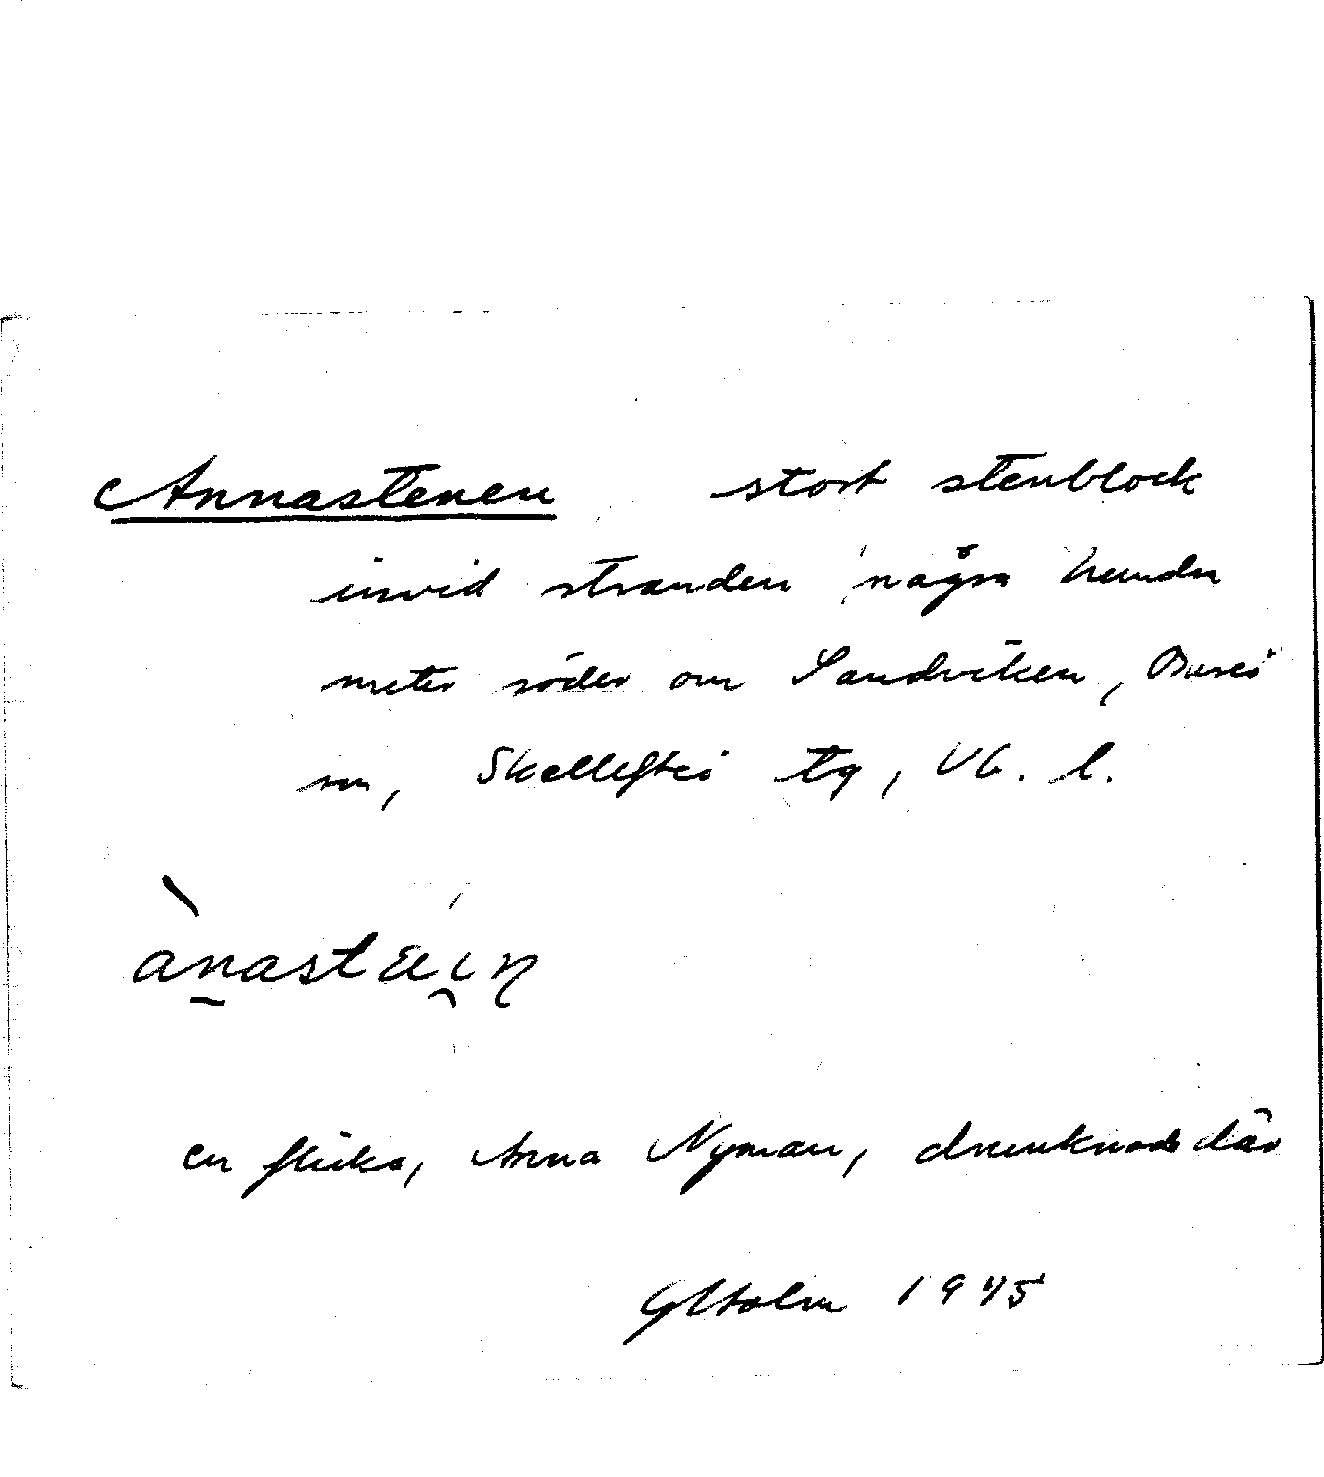 Annastenen stort stenblock
invid stranden några hundra
meter söder om Sandviken, Bureå
sn, Skellefteå tg, Vb. l.
ànastæi̯n
en flicka, Anna Nyman, drunknade där
Holm 1945